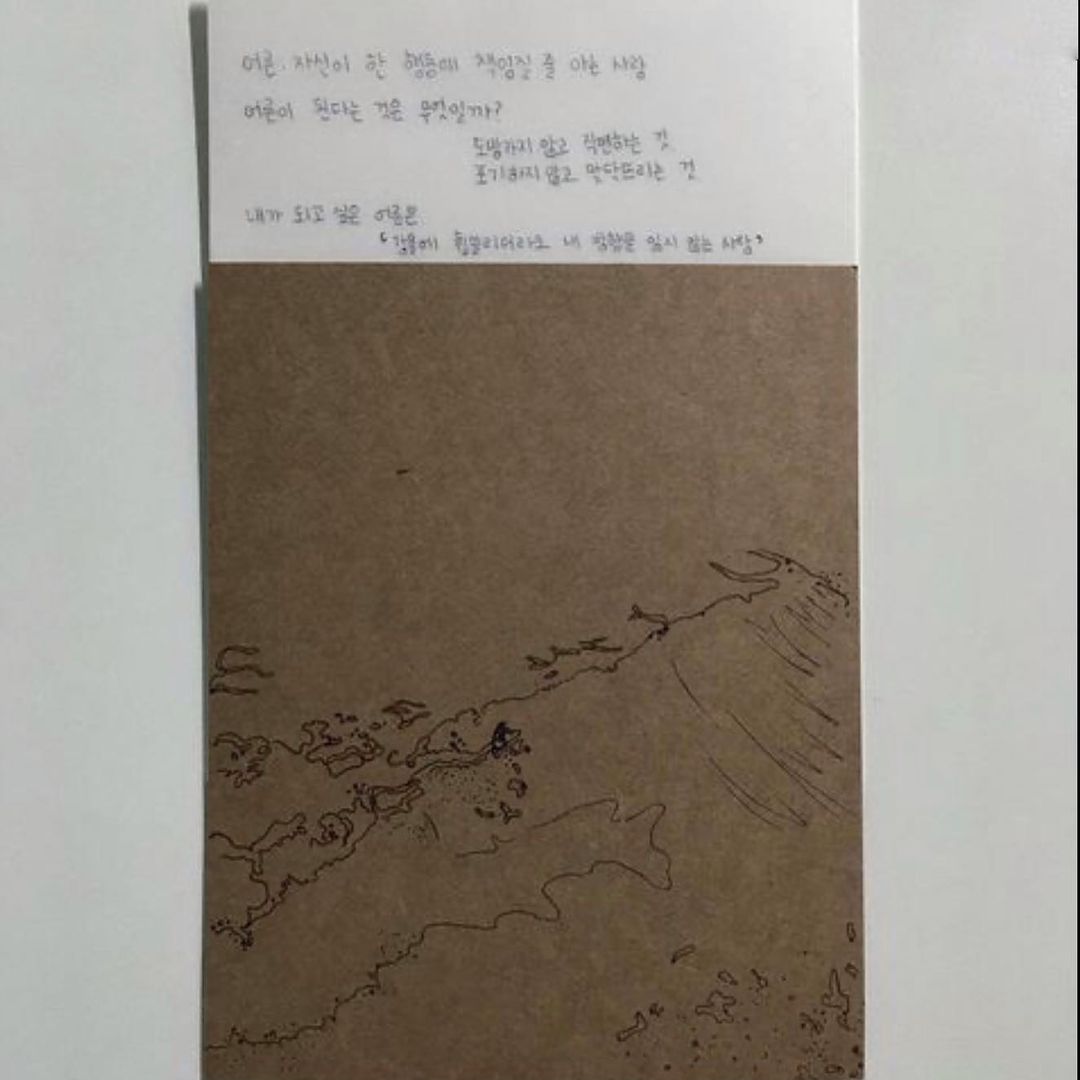 어른. 자신이 한 행동에 책임질 줄 아는 사람
어른이 된다는 것은 무엇일까?
도망가지 않고 직면하는 것
포기하지 않고 맞닥뜨리는 것
내가 되고 싶은 어른은
휩쓸리더라도 내 방향을 잃지 않는 사람'